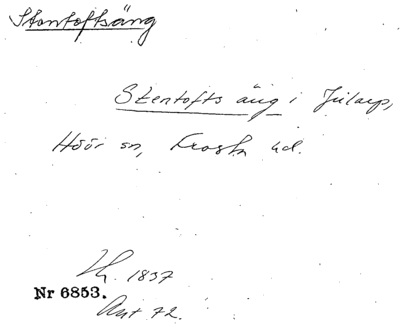 Stentoftsäng
Stentofts äng i Jularp,
Höör sn, Frosta hd.
1837
Nr 6853.
Avt 72.